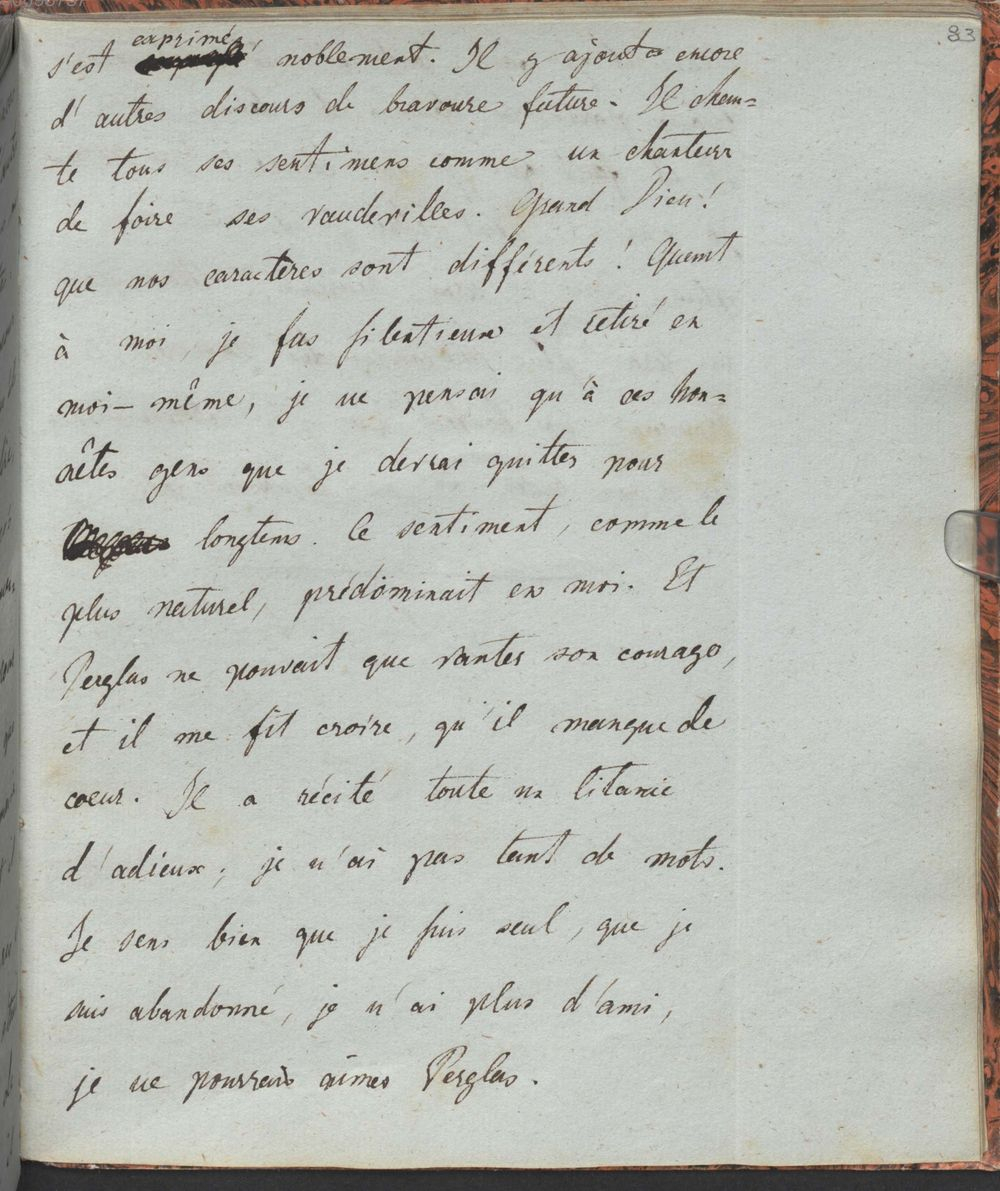 83
s'est exprimé noblement. Il y ajouta encore
d'autres discours de bravoure future. Il chan=
te tous ses sentimens comme un chanteur
de foire ses vaudevilles. Grand Dieu!
que nos caractères sont différents! Quant
à moi, je fus silentieux et retiré en
moi-même, je ne pensai qu'à ces hon=
nêtes gens que je devrai quitter pour
longtems. Ce sentiment, comme le
plus naturel, prédominait en moi. Et
Perglas ne pouvait que vanter son courage,
et il me fit croire, qu'il manque de
coeur. Il a récité toute un litanie
d'adieux; je n'ai pas tant de mots.
Je sens bien que je suis seul, que je
suis abandonné, je n'ai plus d'ami,
je ne pourrais aimer Perglas.